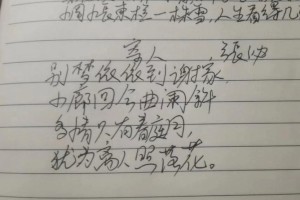 惆怅東栏一株雪,人生看得几
寄人 張泌
别梦依依到谢家
小廊回合曲阑斜
多情只有春庭月,
犹为离人照落花。